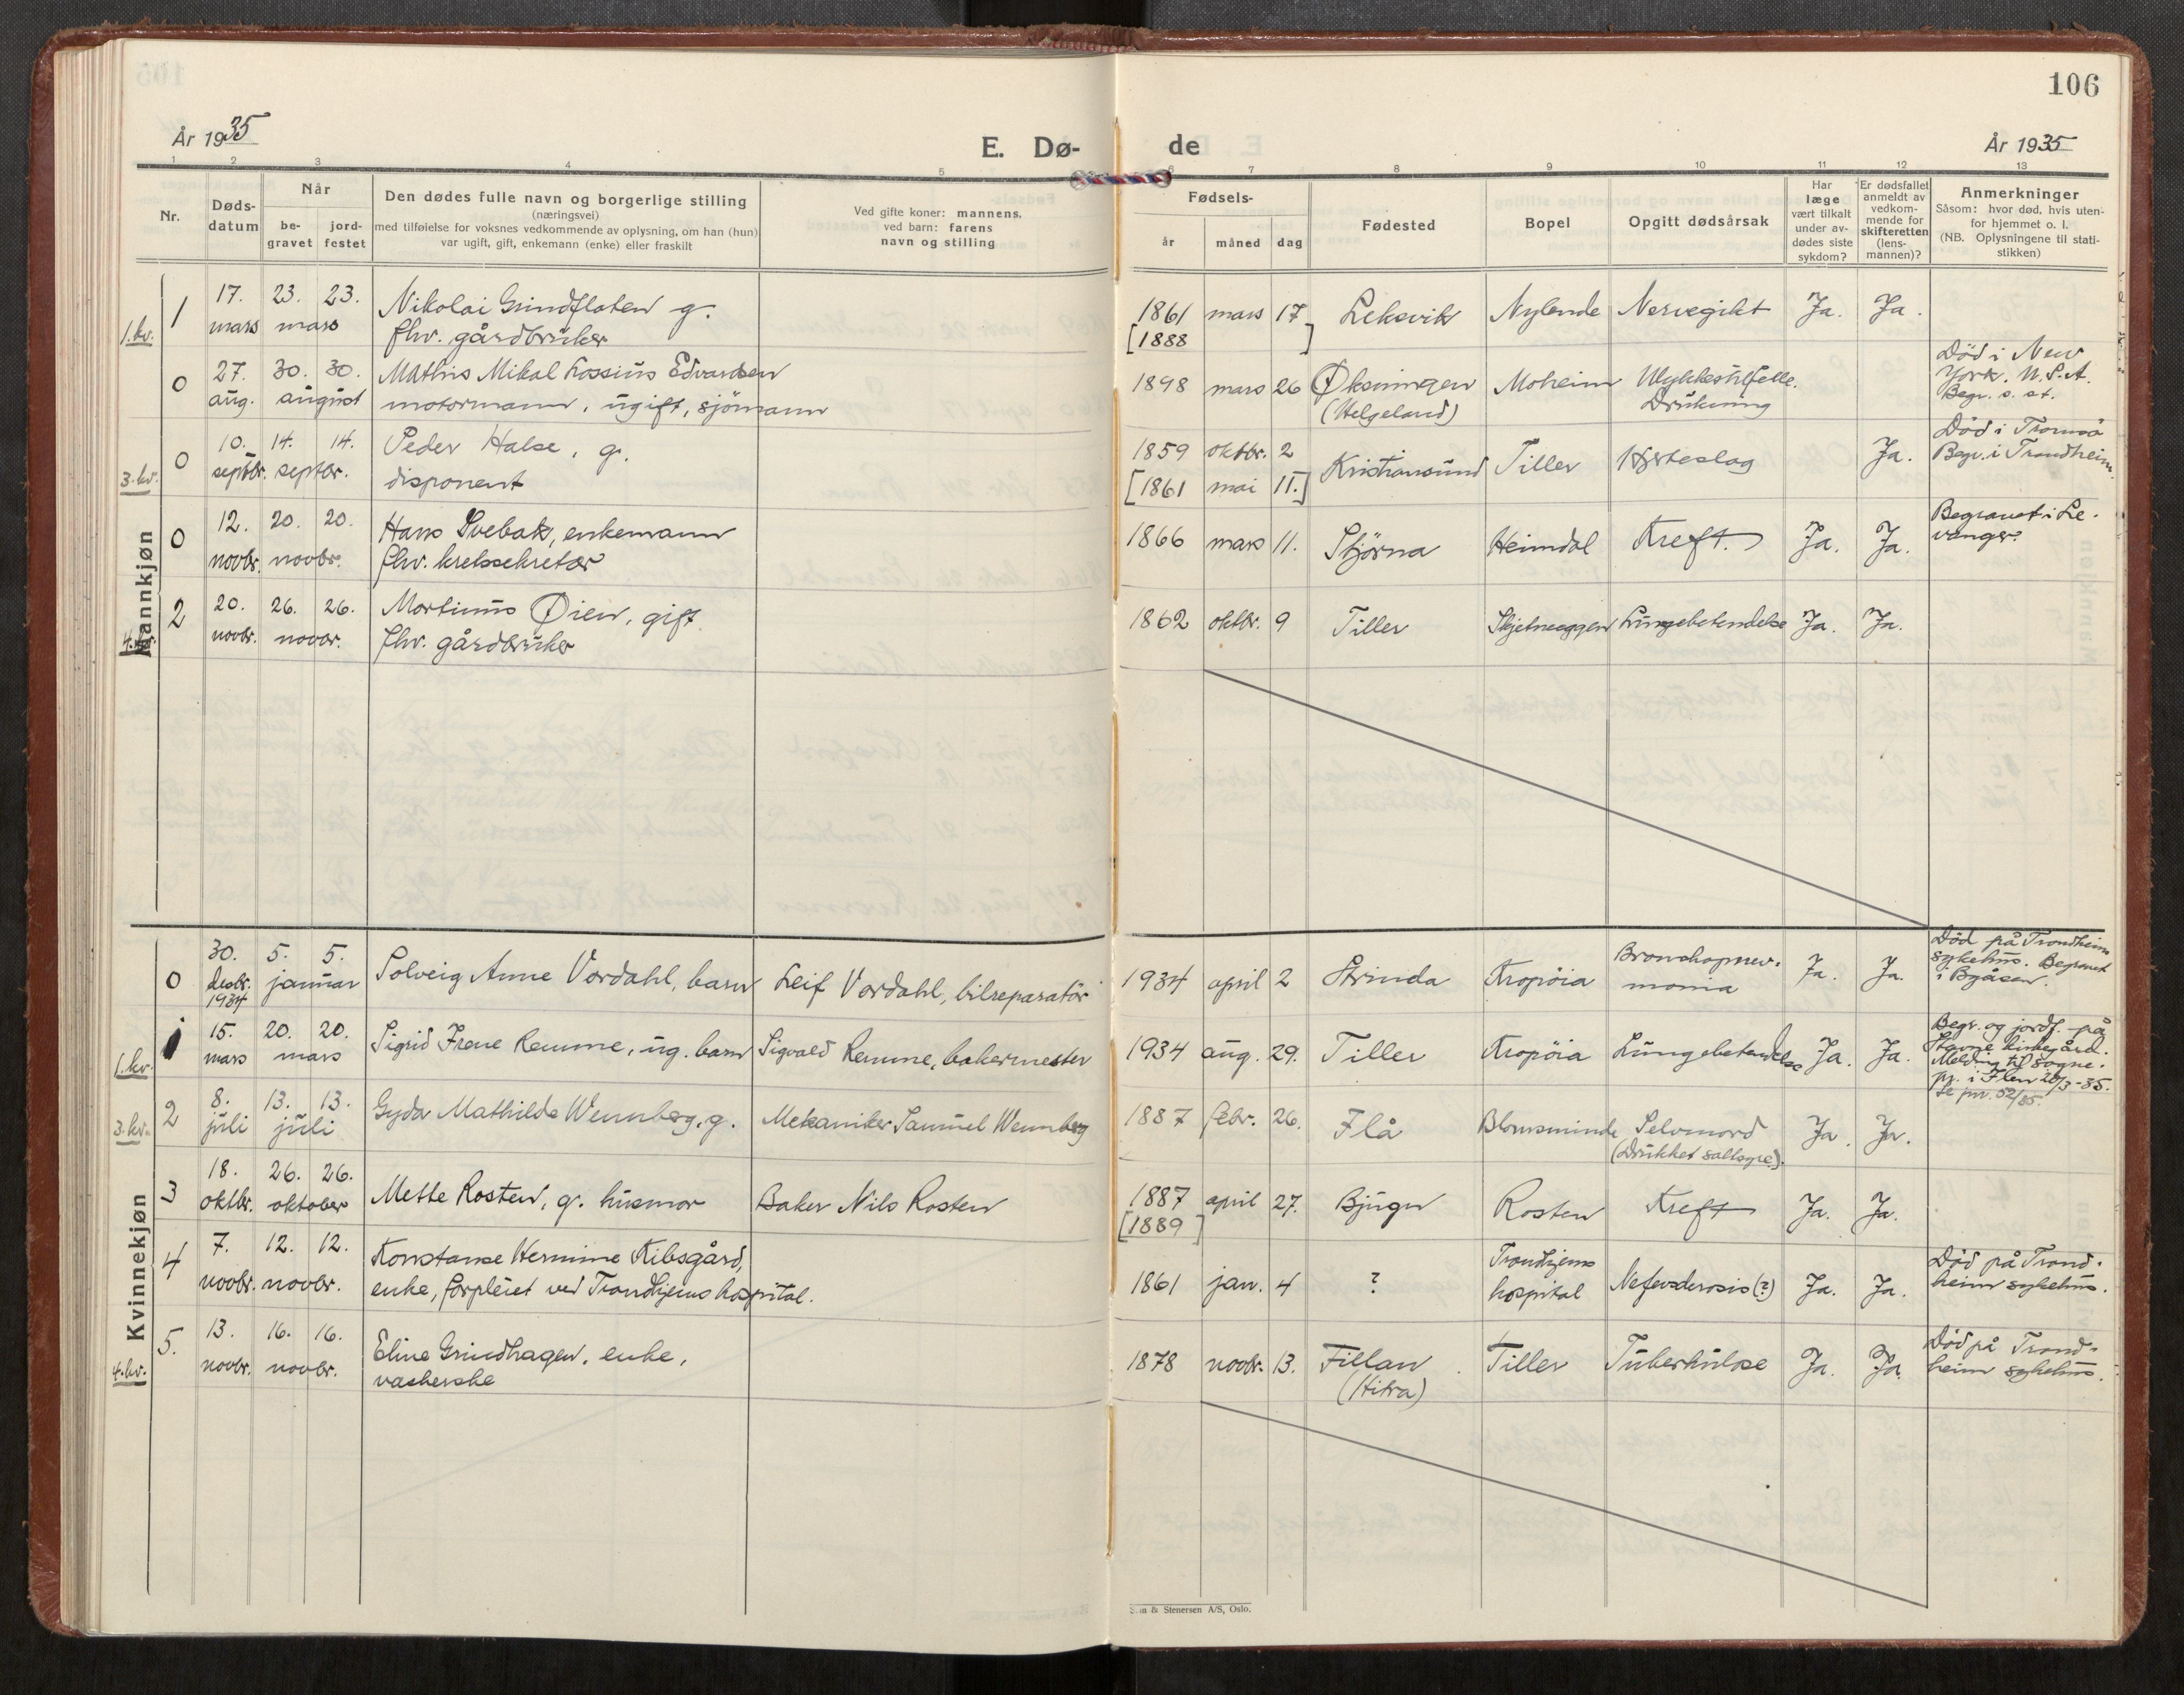 106
År 1935
E. Dø-
de
År 1935
1 2 3 4 5
6 7 8 9 10 11 12 13
Nr.
Døds-
datum
Når
be-
gravet
jord-
festet
Den dødes fulle navn og borgerlige stilling
(næringsvei)
med tilføielse for voksnes vedkommende av oplysning, om han (hun)
var ugift, gift, enkemann (enke) eller fraskilt
Ved gifte koner: mannens,
ved barn: farens
navn og stilling
Fødsels-
år
måned
dag
Fødested
Bopel
Opgitt dødsårsak
Har
læge
vært tilkalt
under av-
dødes siste
sykdom?
Er dødsfallet
anmeldt av
vedkom-
mende for
skifteretten
(lens-
mannen)?
Anmerkninger
Såsom: hvor død, hvis uten-
for hjemmet o. l.
(NB. Oplysningene til stati-
stikken)
Mannkjøn
1. kv.
1
17. 23. 23.
mars mars
Nikolai Grindflaten g.
fhv. gårdbruker
1861 mars 17 Leksvik Nylende Nervegikt Ja. Ja.
[1888 ]
0
27. 30. 30.
aug. august
Mathis Mikal Lossius Edvardsen
motormann, ugift, sjömann
1898 mars 26 Øksningen Moheim Ulykkestilfelle.
(Helgeland) Drukning
Död i New
York. U.S.A.
Begr. s. st.
3. kv.
0
10. 14. 14.
septbr. septbr.
Peder Halse, g.
disponent
1859 oktbr. 2 Kristiansund Tiller Hjerteslag Ja.
[1861 mai 11.]
Död i Tromsö
Begr. i Trondheim.
0
12. 20. 20.
novbr. novbr.
Hans Svebak, enkemann
fhv. kretssekretær
1866 mars 11. Stjörna Heimdal Kreft. Ja. Ja.
Begravet i Le-
vanger.
4. kv.
2
20. 26. 26.
novbr. novbr.
Martinus Øien, gift
fhv. gårdbruker
1862 oktbr. 9 Tiller Skjetneeggen Lungebetendelse Ja. Ja.
Kvinnekjøn
0
30. 5. 5.
desbr. januar
1934
Solveig Anne Vordahl, barn
Leif Vordahl, bilreparatör
1934 april 2 Strinda Kropöia Bronchopnev-
monia Ja. Ja.
Död på Trondheim
sykehus. Begravet
i Byåsen.
1. kv.
1
15. 20. 20.
mars mars
Sigrid Irene Remme, ug. barn
Sigvald Remme, bakermester
1934 aug. 29. Tiller Kropöia Lungebetendelse Ja. Ja.
Begr. og jordf. på
Stavne kirkegård.
Melding til sogne-
pr. i 20/3-35.
Se jnr. 52/35.
3. kv.
2
8. 13. 13.
juli juli
Gyda Mathilde Wennberg, g.
Mekaniker Samuel Wennberg
1887 febr. 26. Flå Blomsminde Selvmord Ja. Ja.
(Drukket saltsyre).
3
18. 26. 26.
oktbr. oktober
Mette Rosten, g. husmor
Baker Nils Rosten
1887 april 27. Bjugn Rosten Kreft Ja. Ja.
[1889 ]
4
7. 12. 12.
novbr. novbr.
Konstanse Hermine Ribsgård,
enke, forpleiet ved Trondhjems hospital.
1861 jan. 4 ? Trondhjems
hospital Nefersclerosis (?) Ja. Ja.
Död på Trond-
heim sykehus.
4. kv.
5.
13. 16. 16.
novbr. novbr.
Eline Grindhagen, enke,
vaskerske
1878 novbr. 13. Fillan Tiller Tuberkulose Ja. Ja.
(Hitra)
Död på Trond-
heim sykehus.
& Stenersen A/S, Oslo.